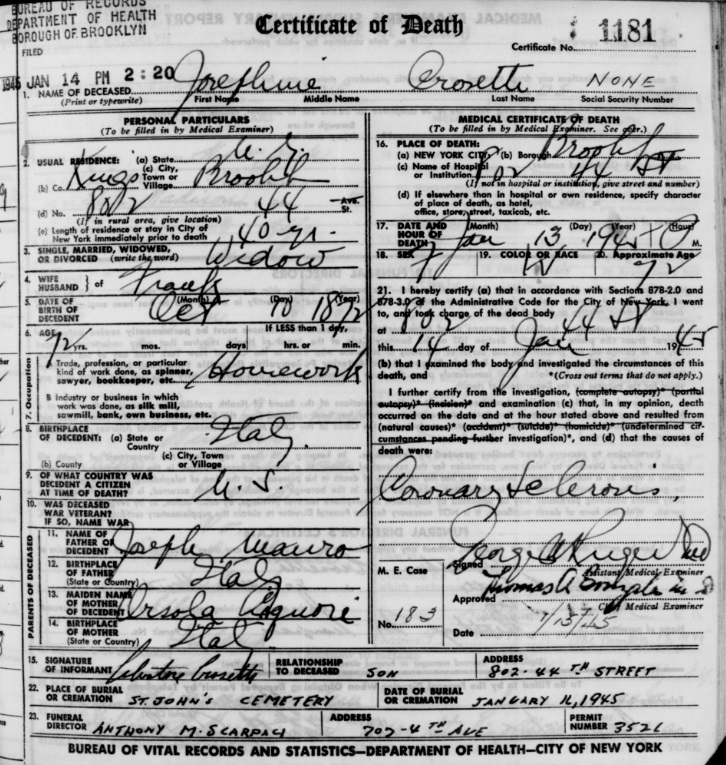 BUREAU OF RECORDS
DEPARTMENT OF HEALTH
BOROUGH OF BROOKLYN
Certificate of Death
1181
Certificate No.
FILED
1945 JAN 14 PM 2:20
Josephine Crosetti NONE
1. NAME OF DECEASED
(Print or typewrite) First Name Middle Name Last Name Social Security Number
PERSONAL PARTICULARS
(To be filled in by Medical Examiner)
2. USUAL RESIDENCE: (a) State N.Y.
(b) Co. Kings (c) City, Town or Village Brooklyn
(d) No. 802 44 Ave. St.
(If in rural area, give location)
(e) Length of residence or stay in City of New York immediately prior to death 40 yr.
3. SINGLE, MARRIED, WIDOWED, OR DIVORCED (write the word) Widow
4. WIFE HUSBAND } of Frank
5. DATE OF BIRTH OF DECEDENT Oct (Month) 10 (Day) 1872 (Year)
6. AGE 72 yrs. mos. days If LESS than 1 day, hrs. or min.
7. Occupation
A Trade, profession, or particular kind of work done, as spinner, sawyer, bookkeeper, etc. Housework
B Industry or business in which work was done, as silk mill, sawmill, bank, own business, etc.
8. BIRTHPLACE OF DECEDENT: (a) State or Country Italy
(b) County (c) City, Town or Village
9. OF WHAT COUNTRY WAS DECEDENT A CITIZEN AT TIME OF DEATH? U.S.
10. WAS DECEASED WAR VETERAN? IF SO, NAME WAR
PARENTS OF DECEASED
11. NAME OF FATHER OF DECEDENT Joseph Mauro
12. BIRTHPLACE OF FATHER (State or Country) Italy
13. MAIDEN NAME OF MOTHER OF DECEDENT Ursola
14. BIRTHPLACE OF MOTHER (State or Country) Italy
MEDICAL CERTIFICATE OF DEATH
(To be filled in by Medical Examiner. See over.)
16. PLACE OF DEATH:
(a) NEW YORK CITY: (b) Borough Brooklyn
(c) Name of Hospital or Institution 802 44 St
(If not in hospital or institution, give street and number)
(d) If elsewhere than in hospital or own residence, specify character of place of death, as hotel, office, store, street, taxicab, etc.
17. DATE AND HOUR OF DEATH (Month) Jan (Day) 13 (Year) 1945 (Hour) M.
18. SEX F 19. COLOR OR RACE W 20. Approximate Age 72
21. I hereby certify (a) that in accordance with Sections 878-2.0 and
878-3.0 of the Administrative Code for the City of New York, I went
to, and took charge of the dead body
at 802 44 St
this 14 day of Jan 1945
(b) that I examined the body and investigated the circumstances of this
death, and *(Cross out terms that do not apply.)
I further certify from the investigation, (complete autopsy)* (partial
autopsy)* (incision)* and examination (c) that, in my opinion, death
occurred on the date and at the hour stated above and resulted from
(natural causes)* (accident)* (suicide)* (homicide)* (undetermined cir-
cumstances pending further investigation)*, and (d) that the causes of
death were:
Coronary Sclerosis.
M. E. Case
No. 183
Signed George W Ruger MD
Assistant Medical Examiner
Approved Thomas A. Gonzales M D
Chief Medical Examiner
Date 1/15/45
15. SIGNATURE OF INFORMANT Salvatore Crosetti RELATIONSHIP TO DECEASED SON ADDRESS 802-44TH STREET
22. PLACE OF BURIAL OR CREMATION ST. JOHN'S CEMETERY DATE OF BURIAL OR CREMATION JANUARY 16, 1945
23. FUNERAL DIRECTOR ANTHONY M. SCARPACI ADDRESS 707-4TH AVE PERMIT NUMBER 3526
BUREAU OF VITAL RECORDS AND STATISTICS—DEPARTMENT OF HEALTH—CITY OF NEW YORK